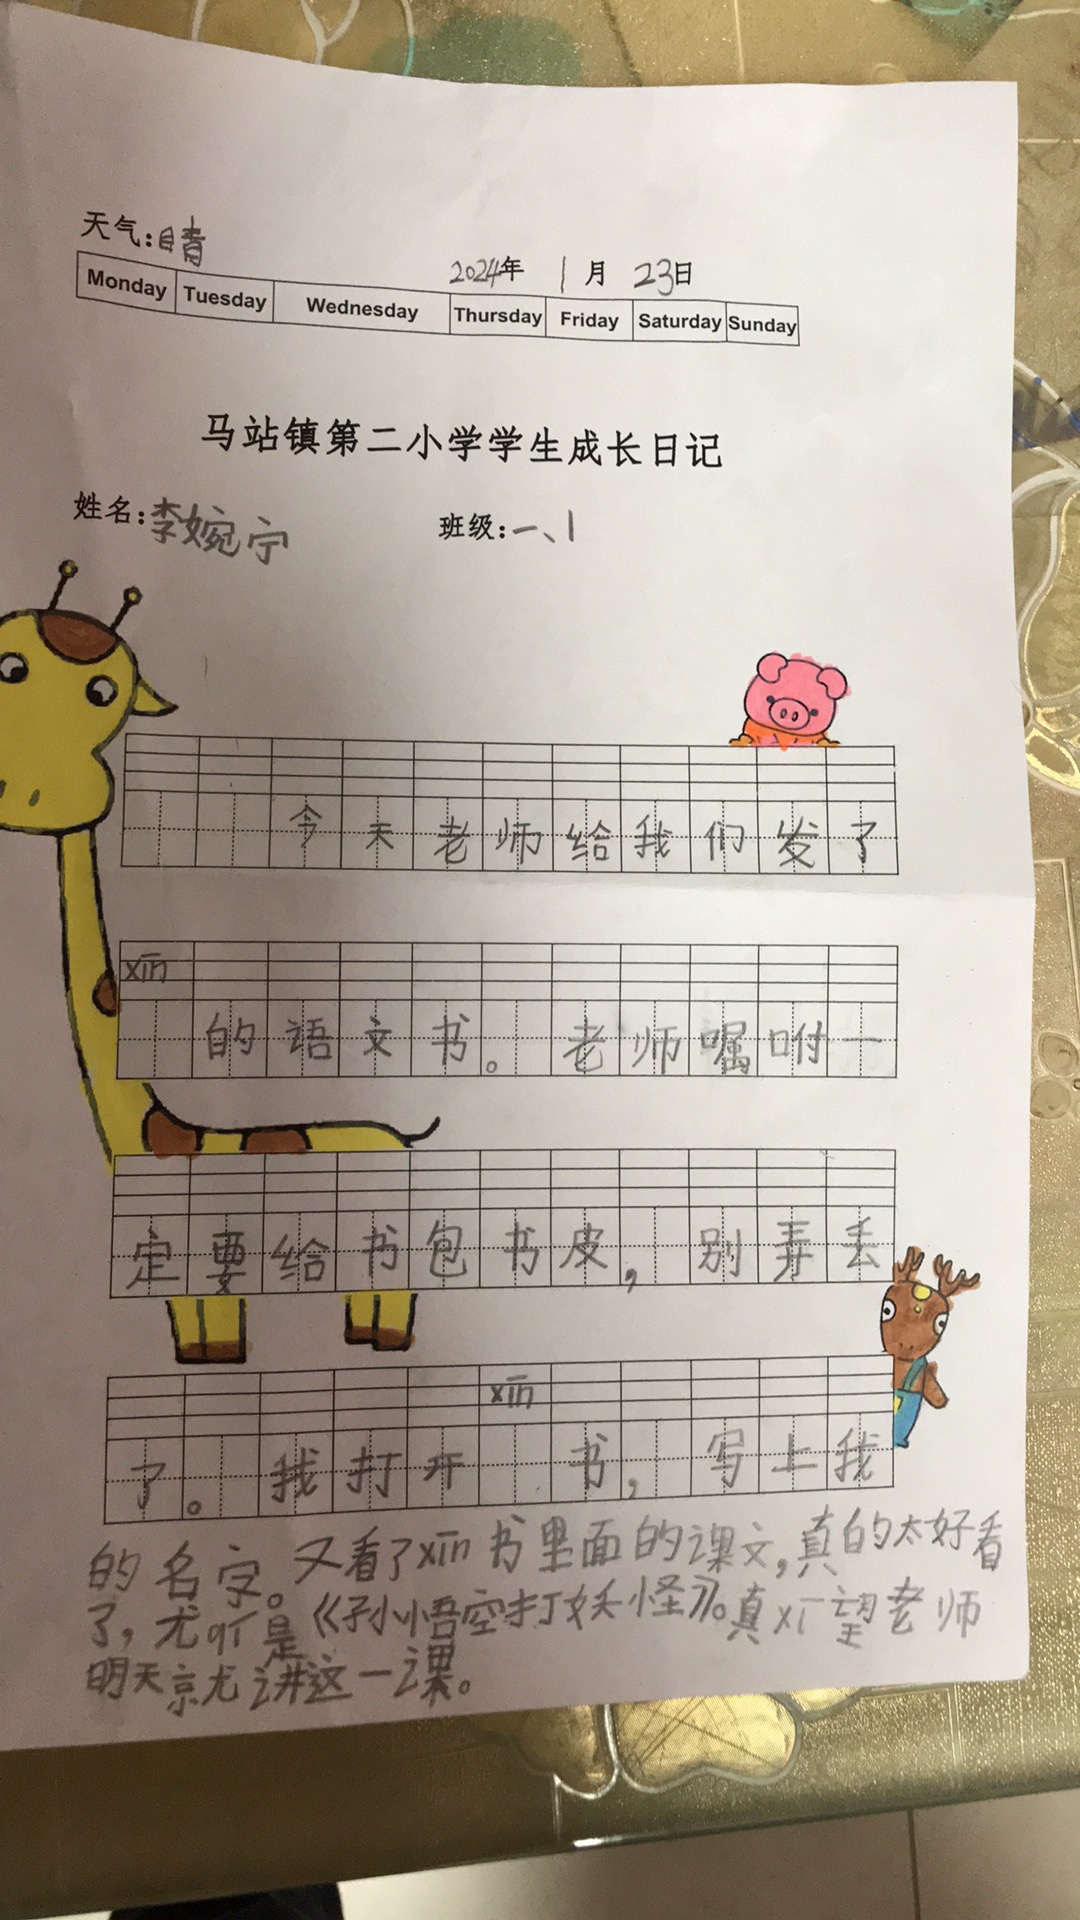 天气:晴
2024年 1月 23日
Monday Tuesday Wednesday Thursday Friday Saturday Sunday
马站镇第二小学学生成长日记
姓名:李婉宁 班级:一、1
今天老师给我们发了
xīn的语文书。老师嘱咐一
定要给书包书皮,别弄丢
了。我打开xīn书,写上我
的名字。又看了xīn书里面的课文,真的太好看
了,尤qí是《孙悟空打妖怪》。真xī望老师
明天就讲这一课。